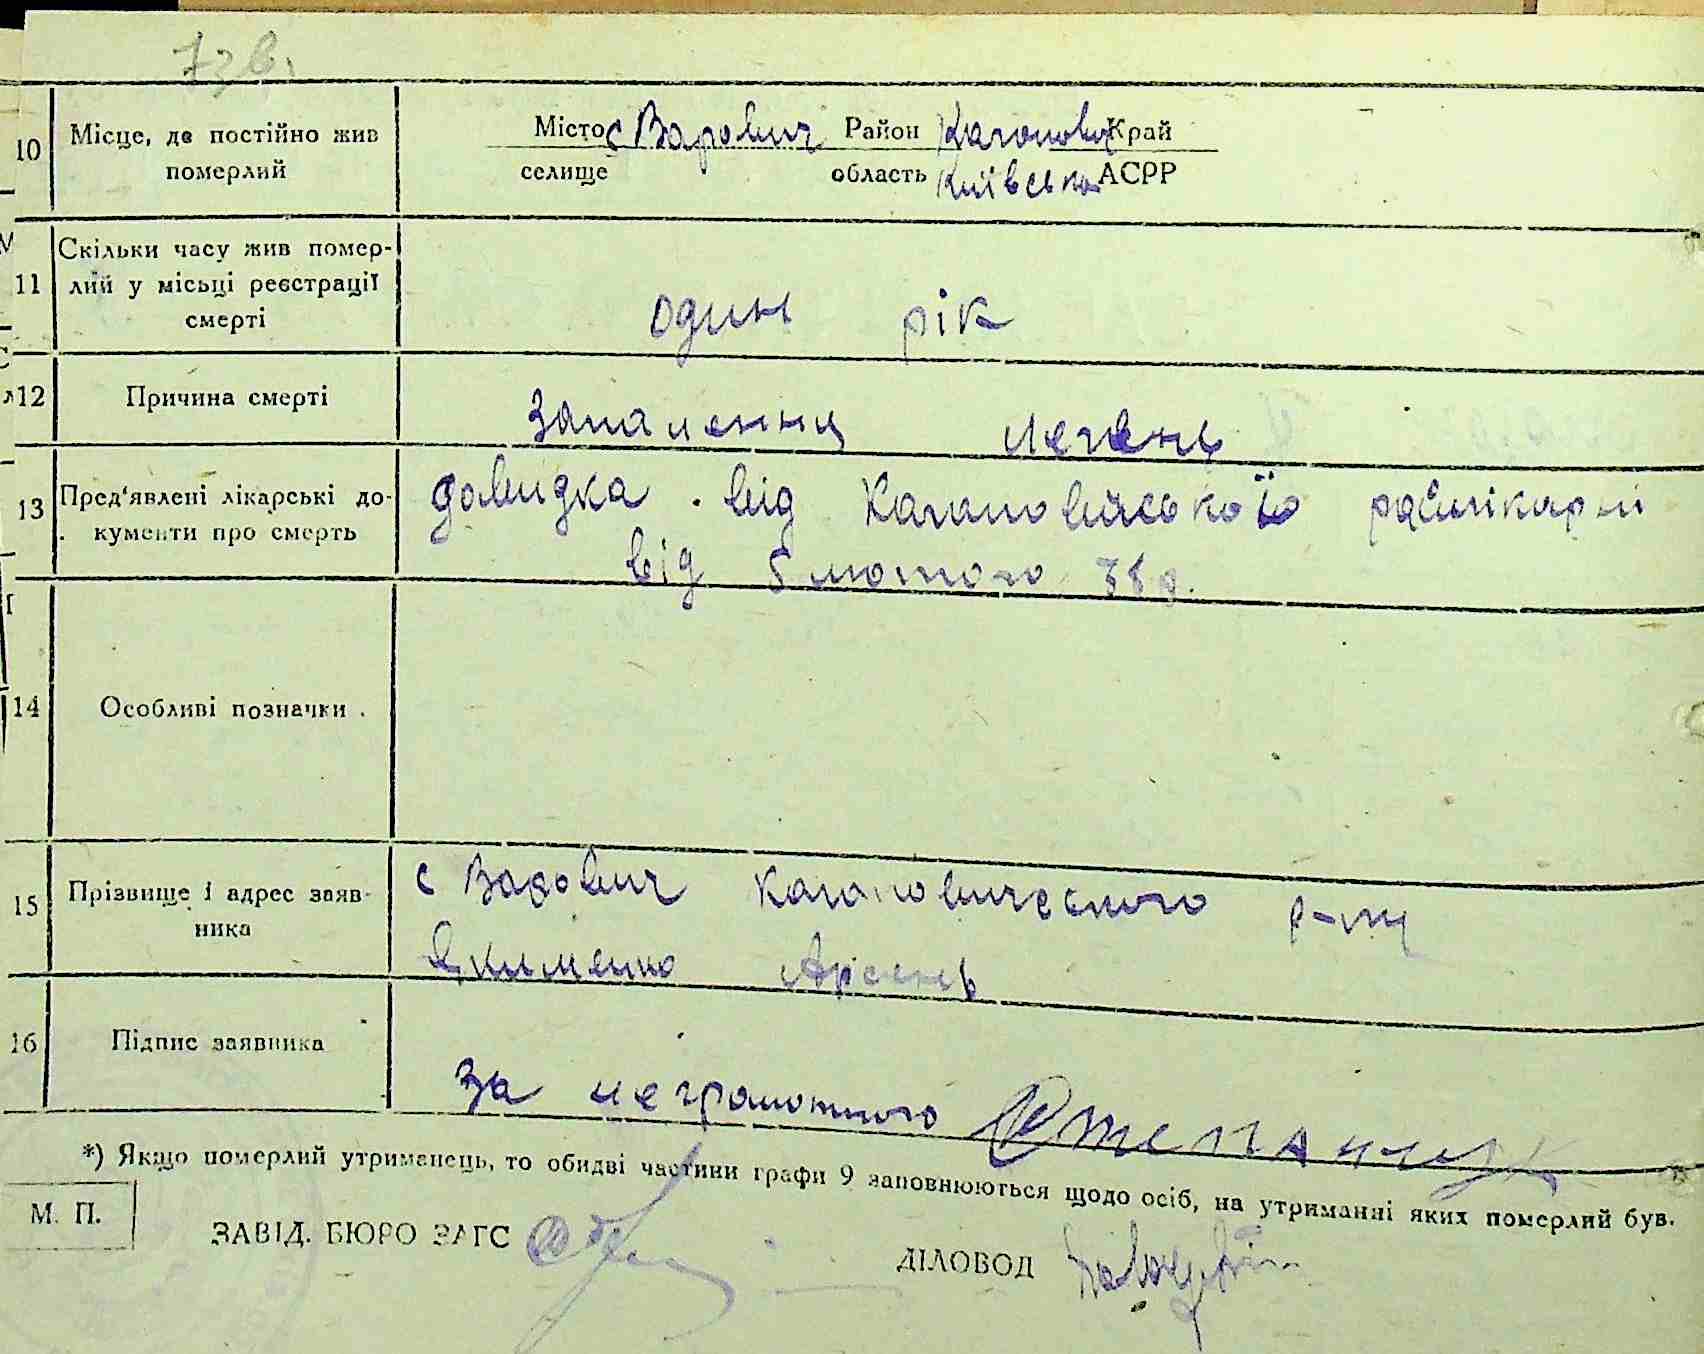 73 в.
10 Місце, де постійно жив Місто с Варович Район Каганович Край
померлий селище область Київська АСРР
11 Скільки часу жив помер-
лий у місьці реєстрації
смерті
один рік
12 Причина смерті запалення легень
13 Пред'явлені лікарські до- довидка від Кагановичської райлікарні
кументи про смерть від 5 лютого 38 р.
14 Особливі позначки
15 Прізвище і адрес заяв- с Варович Кагановичеського р-ну
ника Якименко Арсень
16 Підпис заявника
за неграмотного Степанчук
*) Якщо померлий утриманець, то обидві частини графи 9 заповнюються щодо осіб, на утриманні яких померлий був.
М. П.
ЗАВІД. БЮРО ЗАГС
ДІЛОВОД